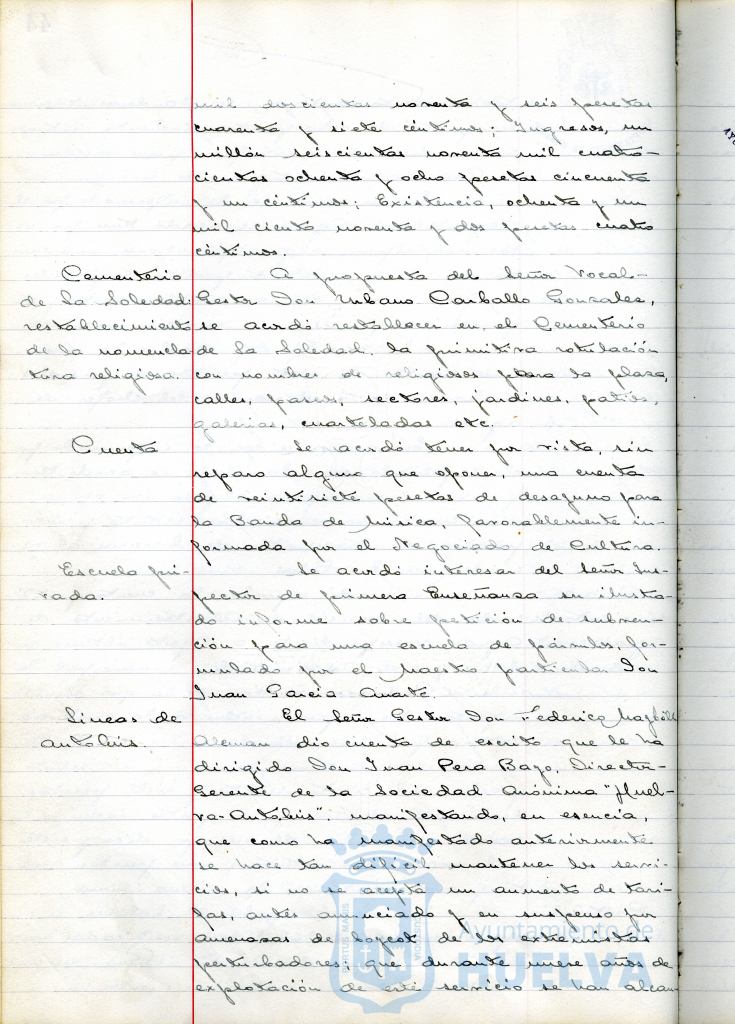 mil doscientas noventa y seis pesetas
cuarenta y siete céntimos; Ingresos, un
millón seiscientas noventa mil cuatro-
cientas ochenta y ocho pesetas cincuenta
y un céntimos; Existencia, ochenta y un
mil ciento noventa y dos pesetas cuatro
céntimos.
Cementerio
de La Soledad:
restablecimiento
de la nomencla
tura religiosa.
A propuesta del Señor Vocal-
Gestor Don Urbano Carballo Gonzalez,
se acordó restablecer en el Cementerio
de La Soledad, la primitiva rotulación
con nombres de religiosos para la plaza,
calles, paseos, sectores, jardines, patios,
galerias, cuarteladas etc.
Cuenta
Se acordó tener por vista, sin
reparo alguno que oponer, una cuenta
de veintisiete pesetas de desayuno para
la Banda de Música, favorablemente in-
formada por el Negociado de Cultura.
Escuela pri-
vada.
Se acordó interesar del Señor Ins-
pector de primera Enseñanza su ilustra-
do informe sobre petición de subven-
ción para una escuela de párvulos, for-
mulado por el Maestro particular Don
Juan Garcia
Lineas de
autobús.
El Señor Gestor Don Federico
Aleman dio cuenta de escrito que le ha
dirigido Don Juan Pera Bago, Director-
Gerente de la Sociedad Anónima "Huel-
va-Autobús", manifestando, en esencia,
que como ha manifestado anteriormente
se hace tan difícil mantener los servi-
cios, si no se acepta un aumento de tari-
fas, antes anunciado y en suspenso por
amenazas de boycot de los extremistas
perturbadores; que durante nueve años de
explotación de este servicio se han alcan-
Ayuntamiento de
HUELVA